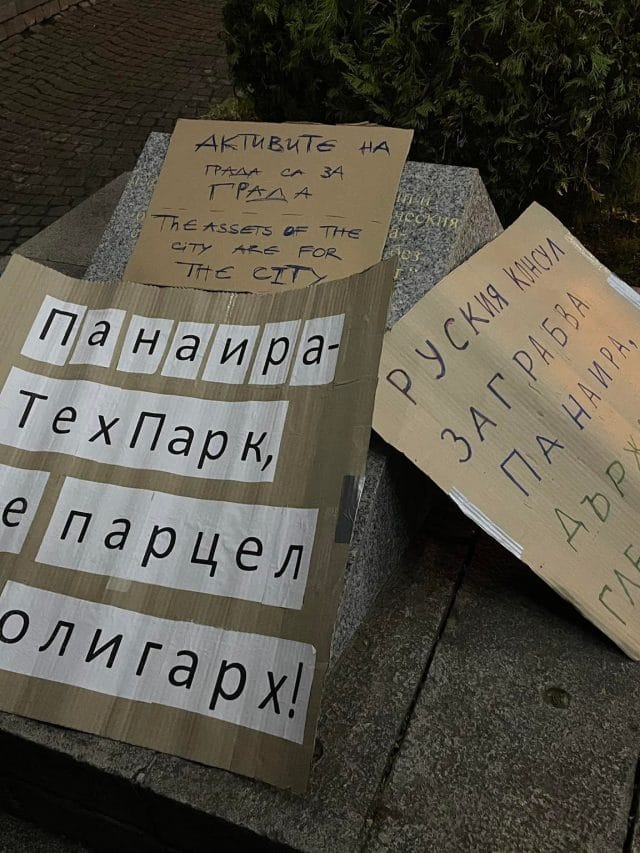 АКТИВИТЕ НА
ГРАДА СА ЗА
ГРАДА
THE ASSETS OF THE
CITY ARE FOR
THE CITY
Панаира-
ТехПарк,
е парцел
олигарх!
РУСКИЯ КОНСУЛ
ЗАГРАБВА
ПАНАИРА,
ДЪРЖ
ГЛЕ